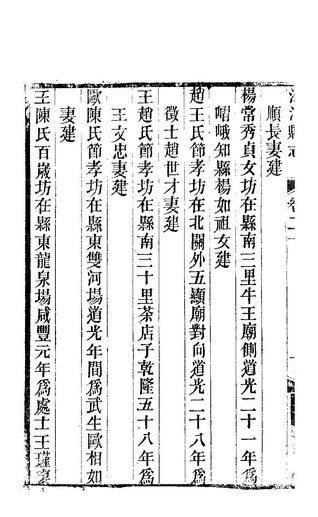 縣志
卷二
順長妻建
楊常秀貞女坊在縣南三里牛王廟側道光二十一年爲
嵋峨知縣楊如祖女建
趙王氏節孝坊在北關外五顯廟對向道光二十八年爲
徵士趙世才妻建
王趙氏節孝坊在縣南三十里茶店子乾隆五十八年爲
王文忠妻建
歐陳氏節孝坊在縣東雙河場道光年間爲武生歐相如
妻建
王陳氏百歲坊在縣東龍泉場咸豐元年爲處士王瑾妻